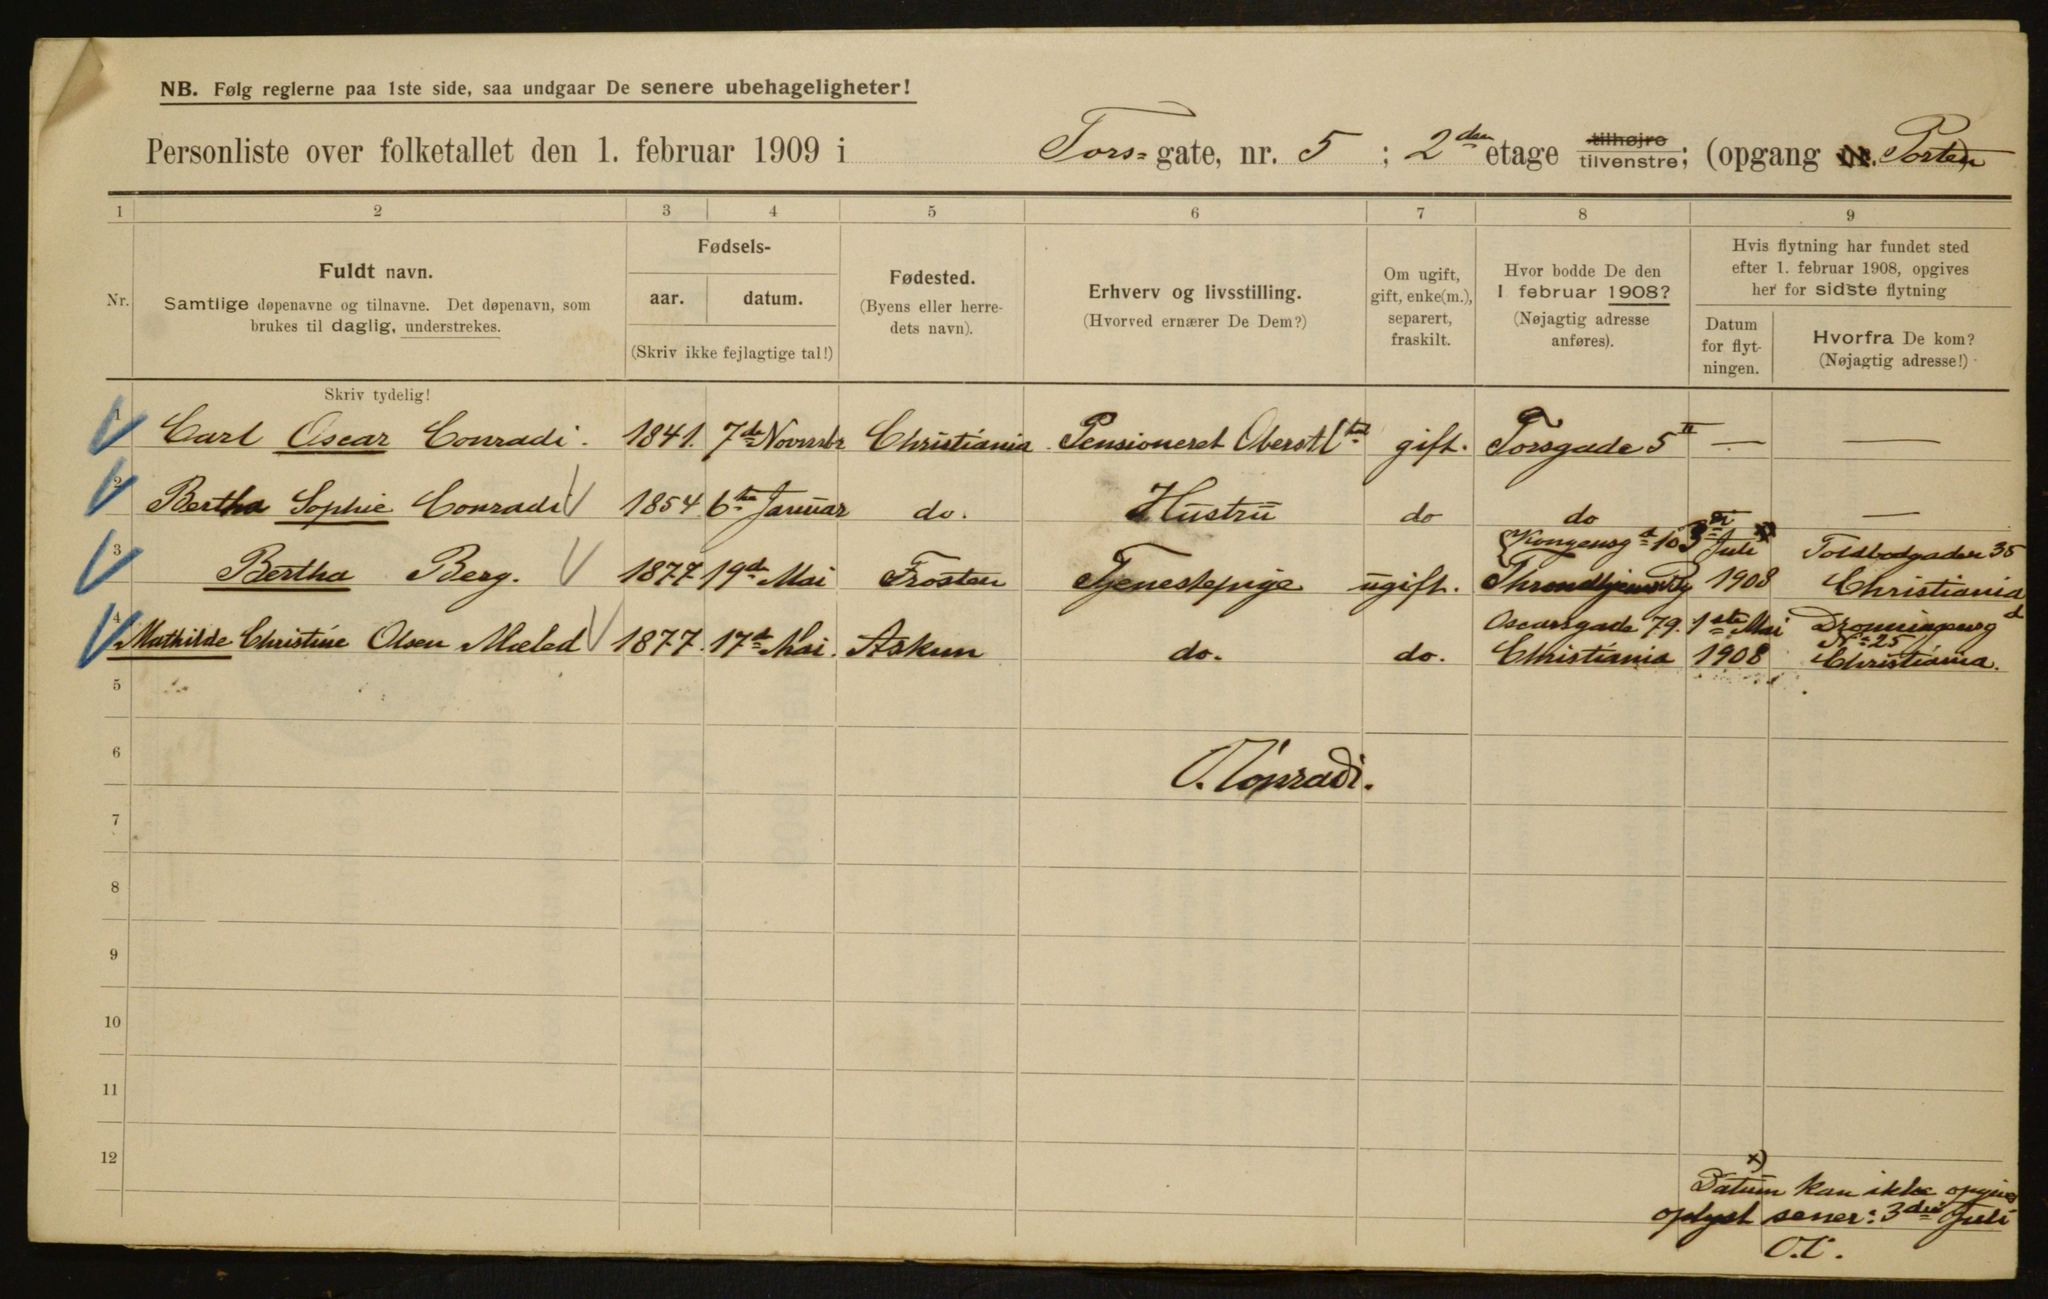 NB. Følg reglerne paa 1ste side, saa undgaar De senere ubehageligheter!
Personliste over folketallet den 1. februar 1909 i Tors= gate, nr. 5 ; 2den etage tilhøjre tilvenstre; (opgang nr. Porten)
1 2 3 4 5 6 7 8 9
Nr.
Fuldt navn.
Samtlige døpenavne og tilnavne. Det døpenavn, som
brukes til daglig, understrekes.
Fødsels-
aar. datum.
(Skriv ikke fejlagtige tal!)
Fødested.
(Byens eller herre-
dets navn).
Erhverv og livsstilling.
(Hvorved ernærer De Dem?)
Om ugift,
gift, enke(m.),
separert,
fraskilt.
Hvor bodde De den
1 februar 1908?
(Nøjagtig adresse
anføres).
Hvis flytning har fundet sted
efter 1. februar 1908, opgives
her for sidste flytning
Datum
for flyt-
ningen.
Hvorfra De kom?
(Nøjagtig adresse!)
Skriv tydelig!
1 Carl Oscar Conradi. 1841. 7de Novembr Christiania Pensioneret Oberstltnt gift. Torsgade 5 II — —
2 Bertha Sophie Conradi 1854 6te Januar do. Hustru do do —
3 Bertha Berg. 1877 19de Mai Frosten Tjenestepige ugift. Kongensgd 10 Throndhjem 3die Juli x) 1908 Toldbodgaden 35 Christiania
4 Mathilde Christine Olsen Mæled 1877. 17de Mai. Askum do. do. Oscarsgade 79. Christiania 1ste Mai 1908 Dronningensgd No 25 Christiania.
5
6
O. Conradi.
7
8
9
10
11
12
x)
Datum kan ikke opgives
oplyst sener: 3die Juli
O.C.